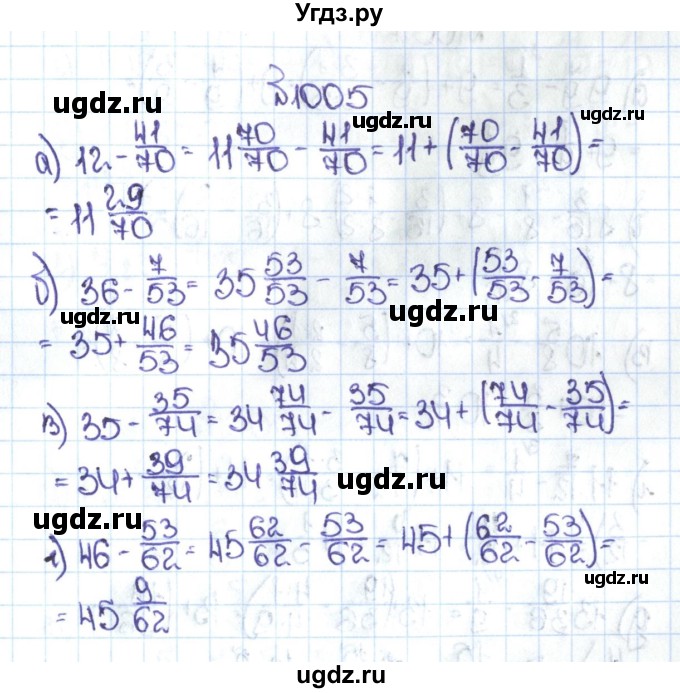 Угдз.ру
№1005
ugdz.ru ugdz.ru
а) 12 - 41/70 = 11 70/70 - 41/70 = 11 + (70/70 - 41/70) =
= 11 29/70
б) 36 - 7/53 = 35 53/53 - 7/53 = 35 + (53/53 - 7/53) =
ugdz.ru ugdz.ru
= 35 + 46/53 = 35 46/53
в) 35 - 35/74 = 34 74/74 - 35/74 = 34 + (74/74 - 35/74) =
= 34 + 39/74 = 34 39/74
ugdz.ru ugdz.ru
г) 46 - 53/62 = 45 62/62 - 53/62 = 45 + (62/62 - 53/62) =
ugdz.ru
= 45 9/62
ugdz.ru